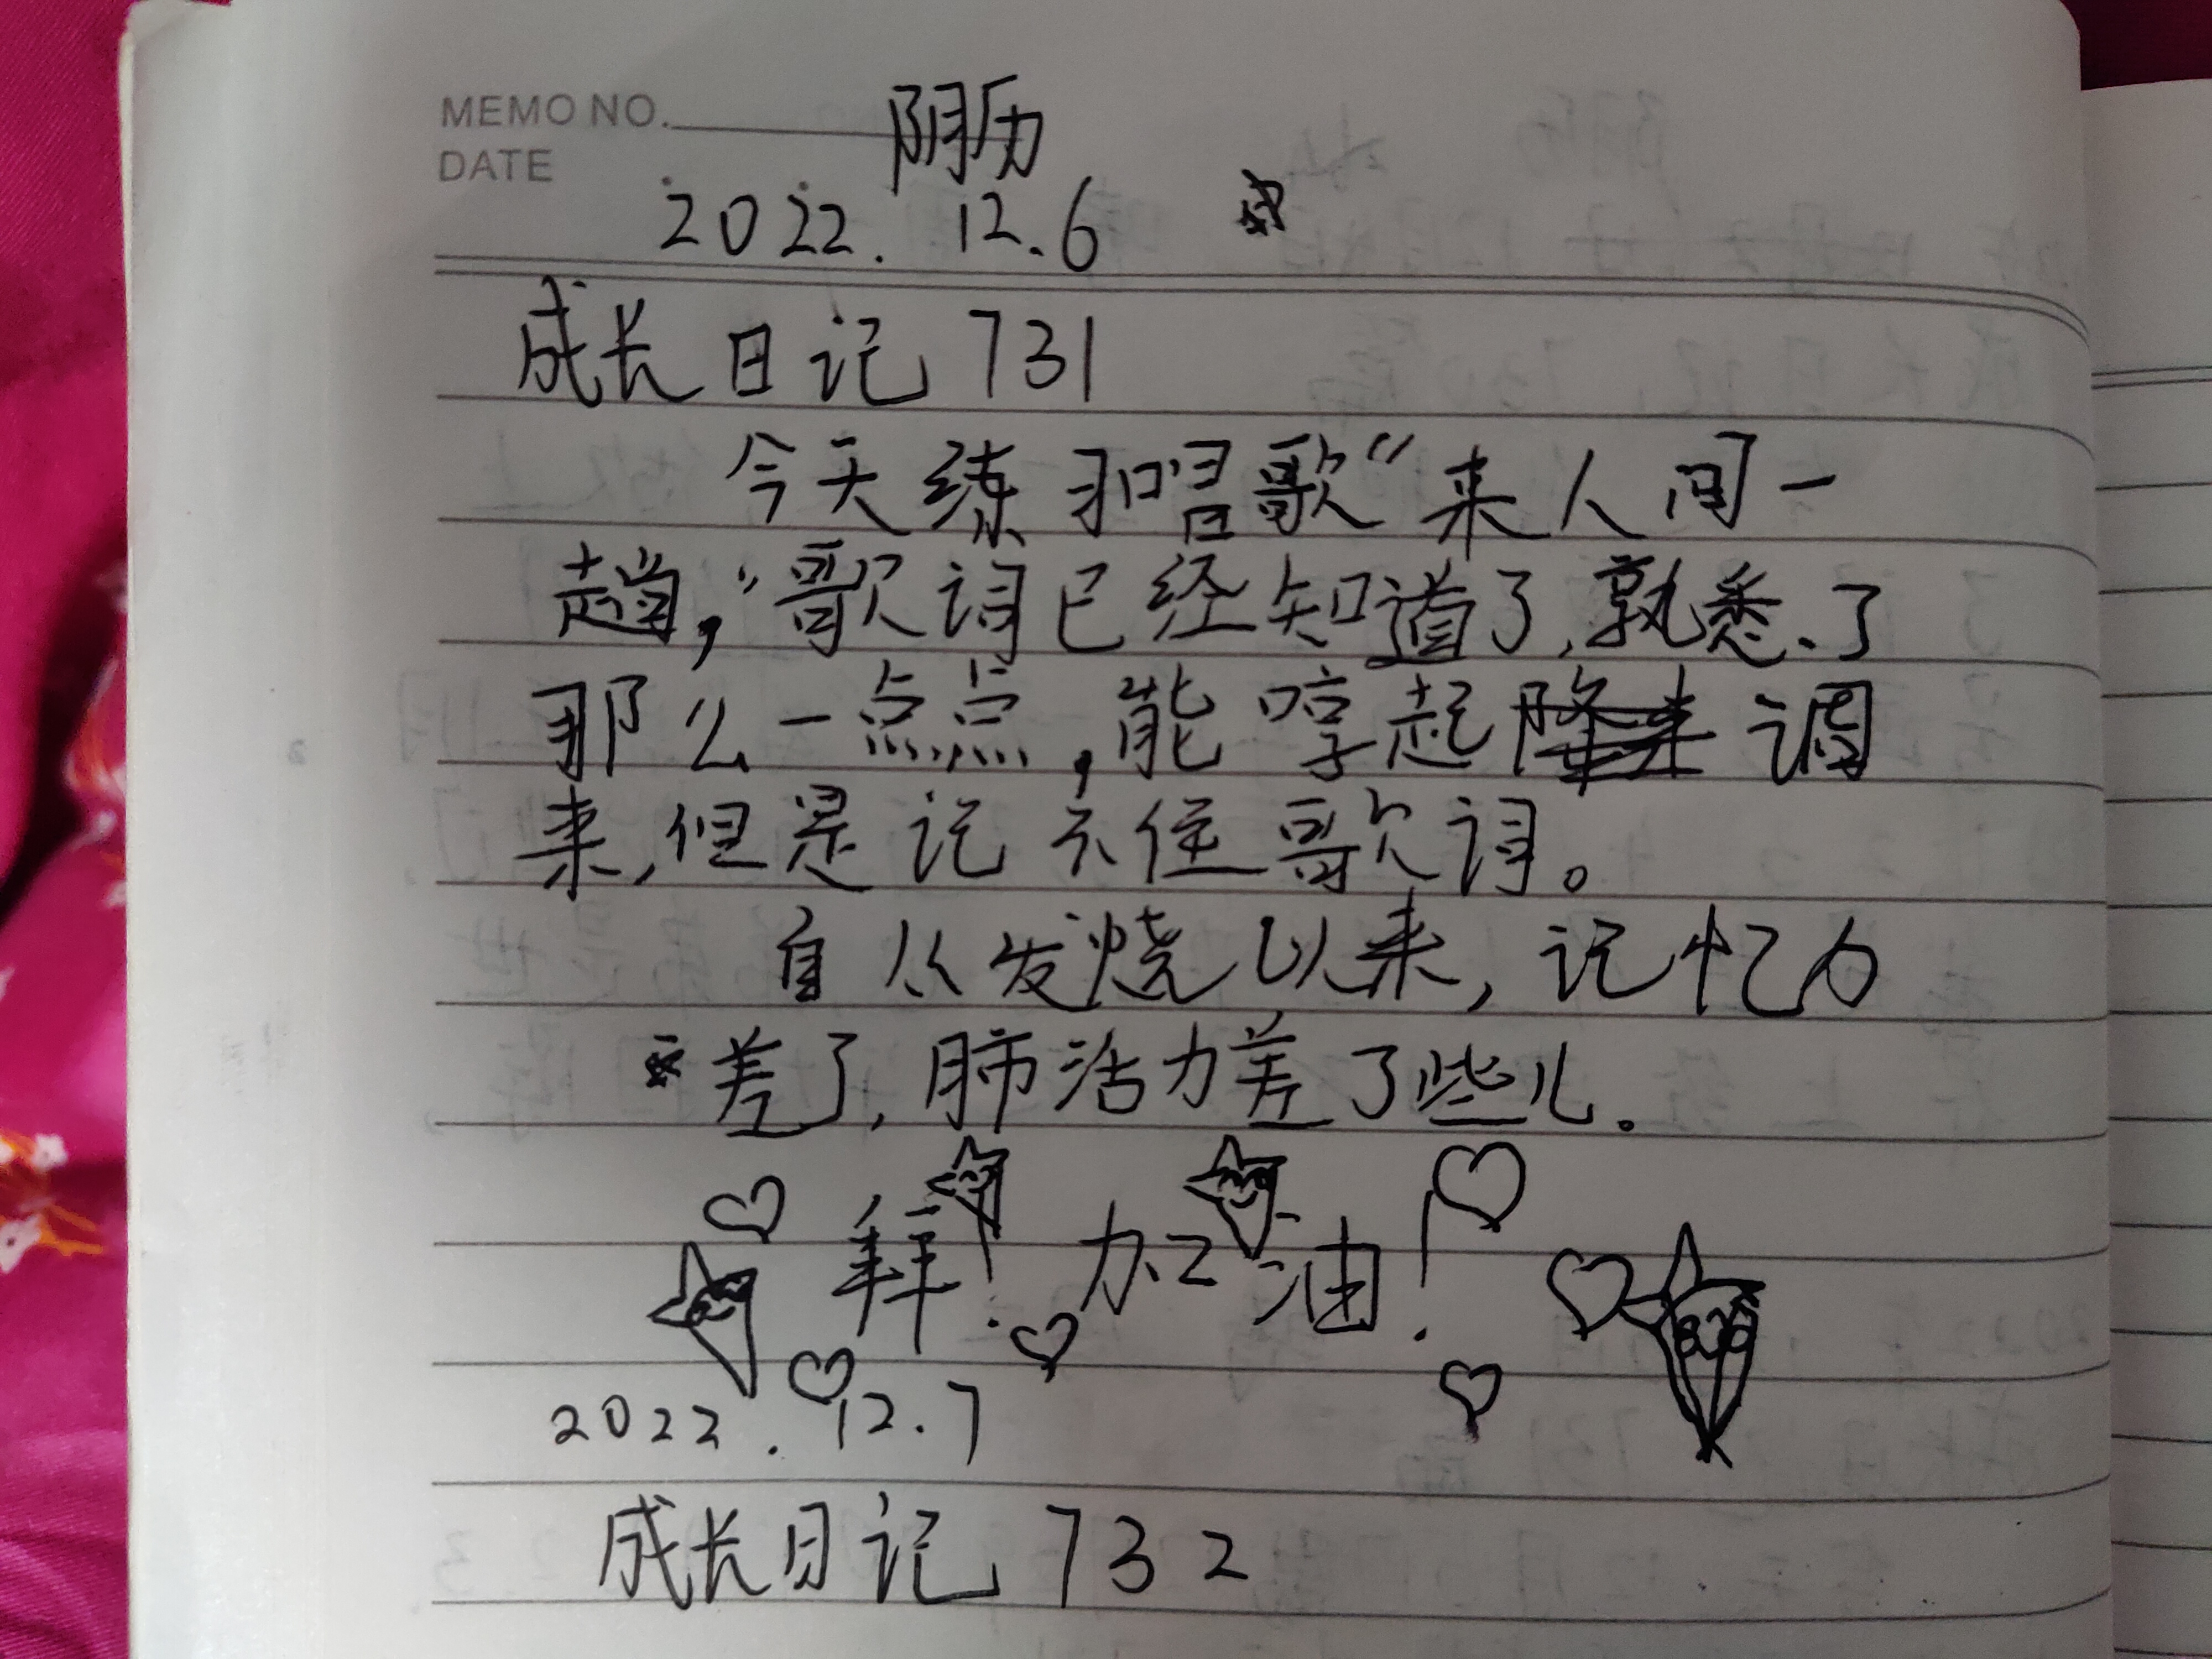 MEMO NO.
阴历
DATE
2022. 12.6
成长日记 731
今天练习唱歌“来人间一
趟,”歌词已经知道了,熟悉、了
那么一点点,能哼起 调
来,但是记不住歌词。
自从发烧以来,记忆力
差了,肺活力差了些儿。
拜! 加油!
2022. 12.7
成长日记 732